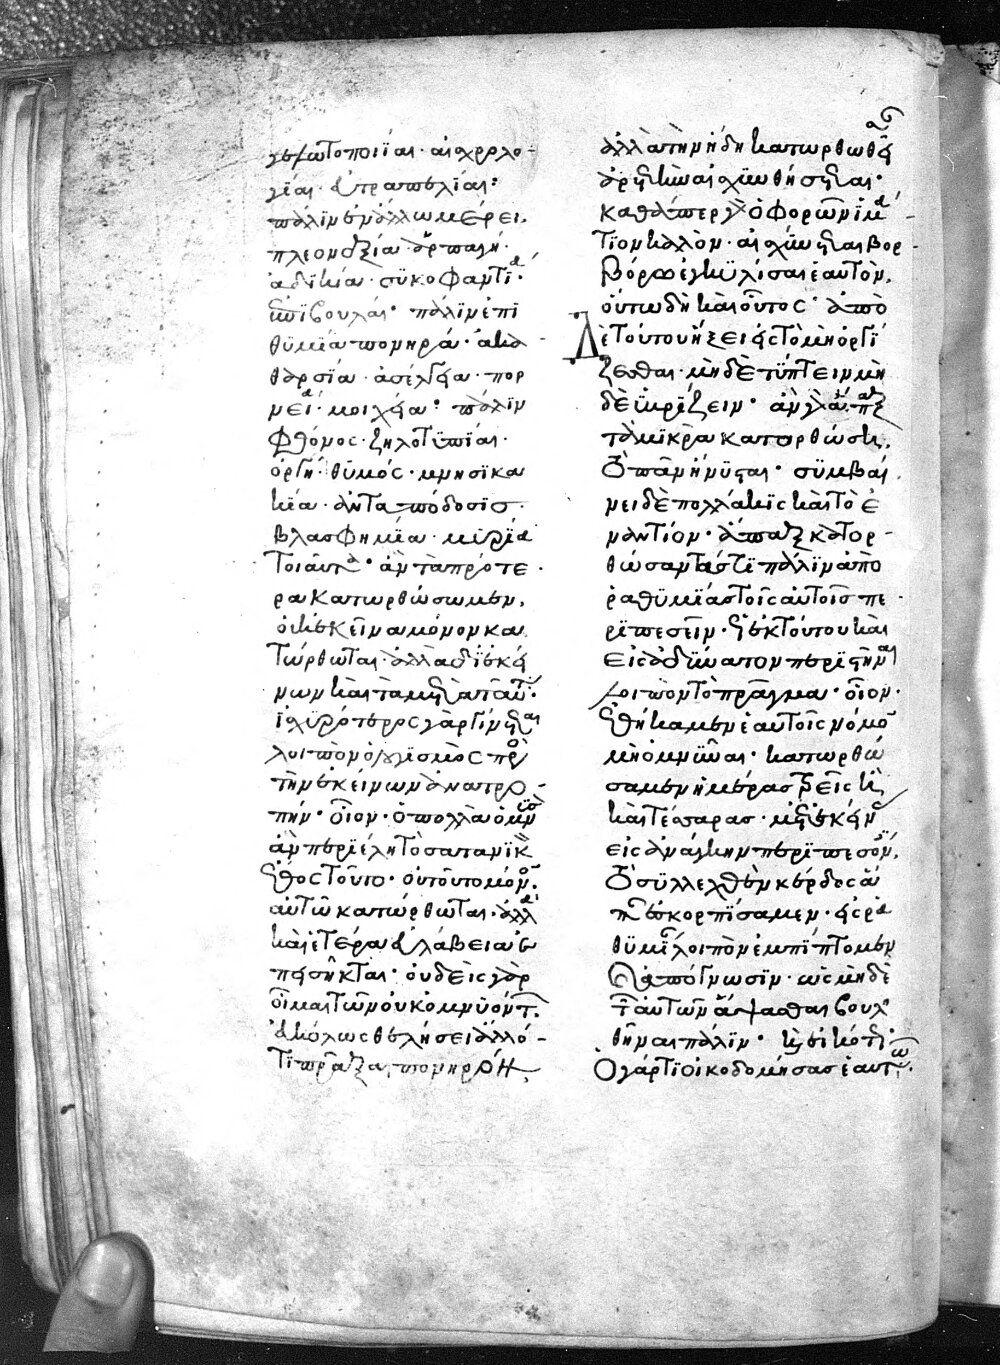 γελωτοποιΐαι · αἰσχρολο-
γίαι · εὐτραπελίαι:
πάλιν ἐν ἄλλω μέρει.
πλεονεξία · ἁρπαγή ·
ἀδικία · συκοφαντία ·
ἐπιβουλαί · πάλιν ἐπι
θυμία πονηρά · ἀκα-
θαρσία · ἀσέλγεια · πορ
νεία · μοιχεία: πάλιν
φθόνος · ζηλοτυπία ·
ὀργή · θυμός · μνησικα
κία · ἀνταπόδοσις ·
βλασφημία · μυρία
τοιαῦτα · ἂν τὰ πρότε
ρα κατωρθώσωμεν,
οὐκ ἐκεῖνα μόνον κα
τώρθωται, ἀλλὰ δι' ἐκεί
νων καὶ τὰ μετὰ ταῦτα ·
ἰσχυρότερος γὰρ γίνεται
λοιπὸν ὁ λογισμὸς πρὸς
τὴν ἐκείνων ἀνατρο-
πήν · οἷον · ὁ πολλὰ ὀμνὺς
ἂν περιέλη τὸ σατανικὸν
ἔθος τοῦτο · οὐ τοῦτο μόνον
αὐτῶ κατώρθωται · ἀλλὰ
καὶ ἑτέρα εὐλάβεια ἐ
πεισῆκται · οὐδεὶς γὰρ
οἶμαι τῶν οὐκ ὀμνυόντων
εὐκόλως θελήσει ἄλλό-
τι πρᾶξαι πονηρὸν
ἀλλὰ τὴν ἤδη κατωρθωθεῖσαν
ἀρετὴν αἰσχυνθήσεται ·
καθάπερ γὰρ ὁ φορῶν ἱμά-
τιον καλὸν · αἰσχύνεται βορ-
βόρω ἐγκυλίσαι ἑαυτόν,
οὕτω δὴ καὶ οὗτος · ἀπὸ
δὲ τούτου ἥξει εἰς τὸ μὴ ὀργί
ζεσθαι · μὴ δὲ τύπτειν μὴ
δὲ ὑβρίζειν · ἂν γὰρ ἅπαξ
τὰ μικρὰ κατορθώσης,
τὸ πᾶν ἤνυσται · συμβαί
νει δὲ πολλάκις καὶ τὸ ἐ
ναντίον · ἅπαξ κατορ-
θώσαντας τὶ πάλιν ἀπὸ
ῥαθυμίας τοῖς αὐτοῖς πε-
ριπεσεῖν · ὥστε ἐκ τούτου καὶ
εἰς ἀδύνατον περιστῆναι
λοιπὸν τὸ πρᾶγμα · οἷον ·
ἐθήκαμεν ἑαυτοῖς νόμον
μὴ ὀμνῦναι · κατωρθώ
σαμεν ἡμέρας τρεῖς ἢ
καὶ τέσσαρας · μετ' ἐκείνας
εἰς ἀνάγκην περιπεσόντες,
τὸ συλλεχθὲν κέρδος ἅπαν
ἐσκορπίσαμεν · εἰς ῥα
θυμίαν λοιπὸν ἐμπίπτομεν
καὶ ἀπόγνωσιν · ὡς μὴ δὲ
τῶν αὐτῶν ἅψασθαι βουλη
θῆναι πάλιν · καὶ εἰκότως ·
ὁ γάρ τι οἰκοδομήσας ἑαυτῶ